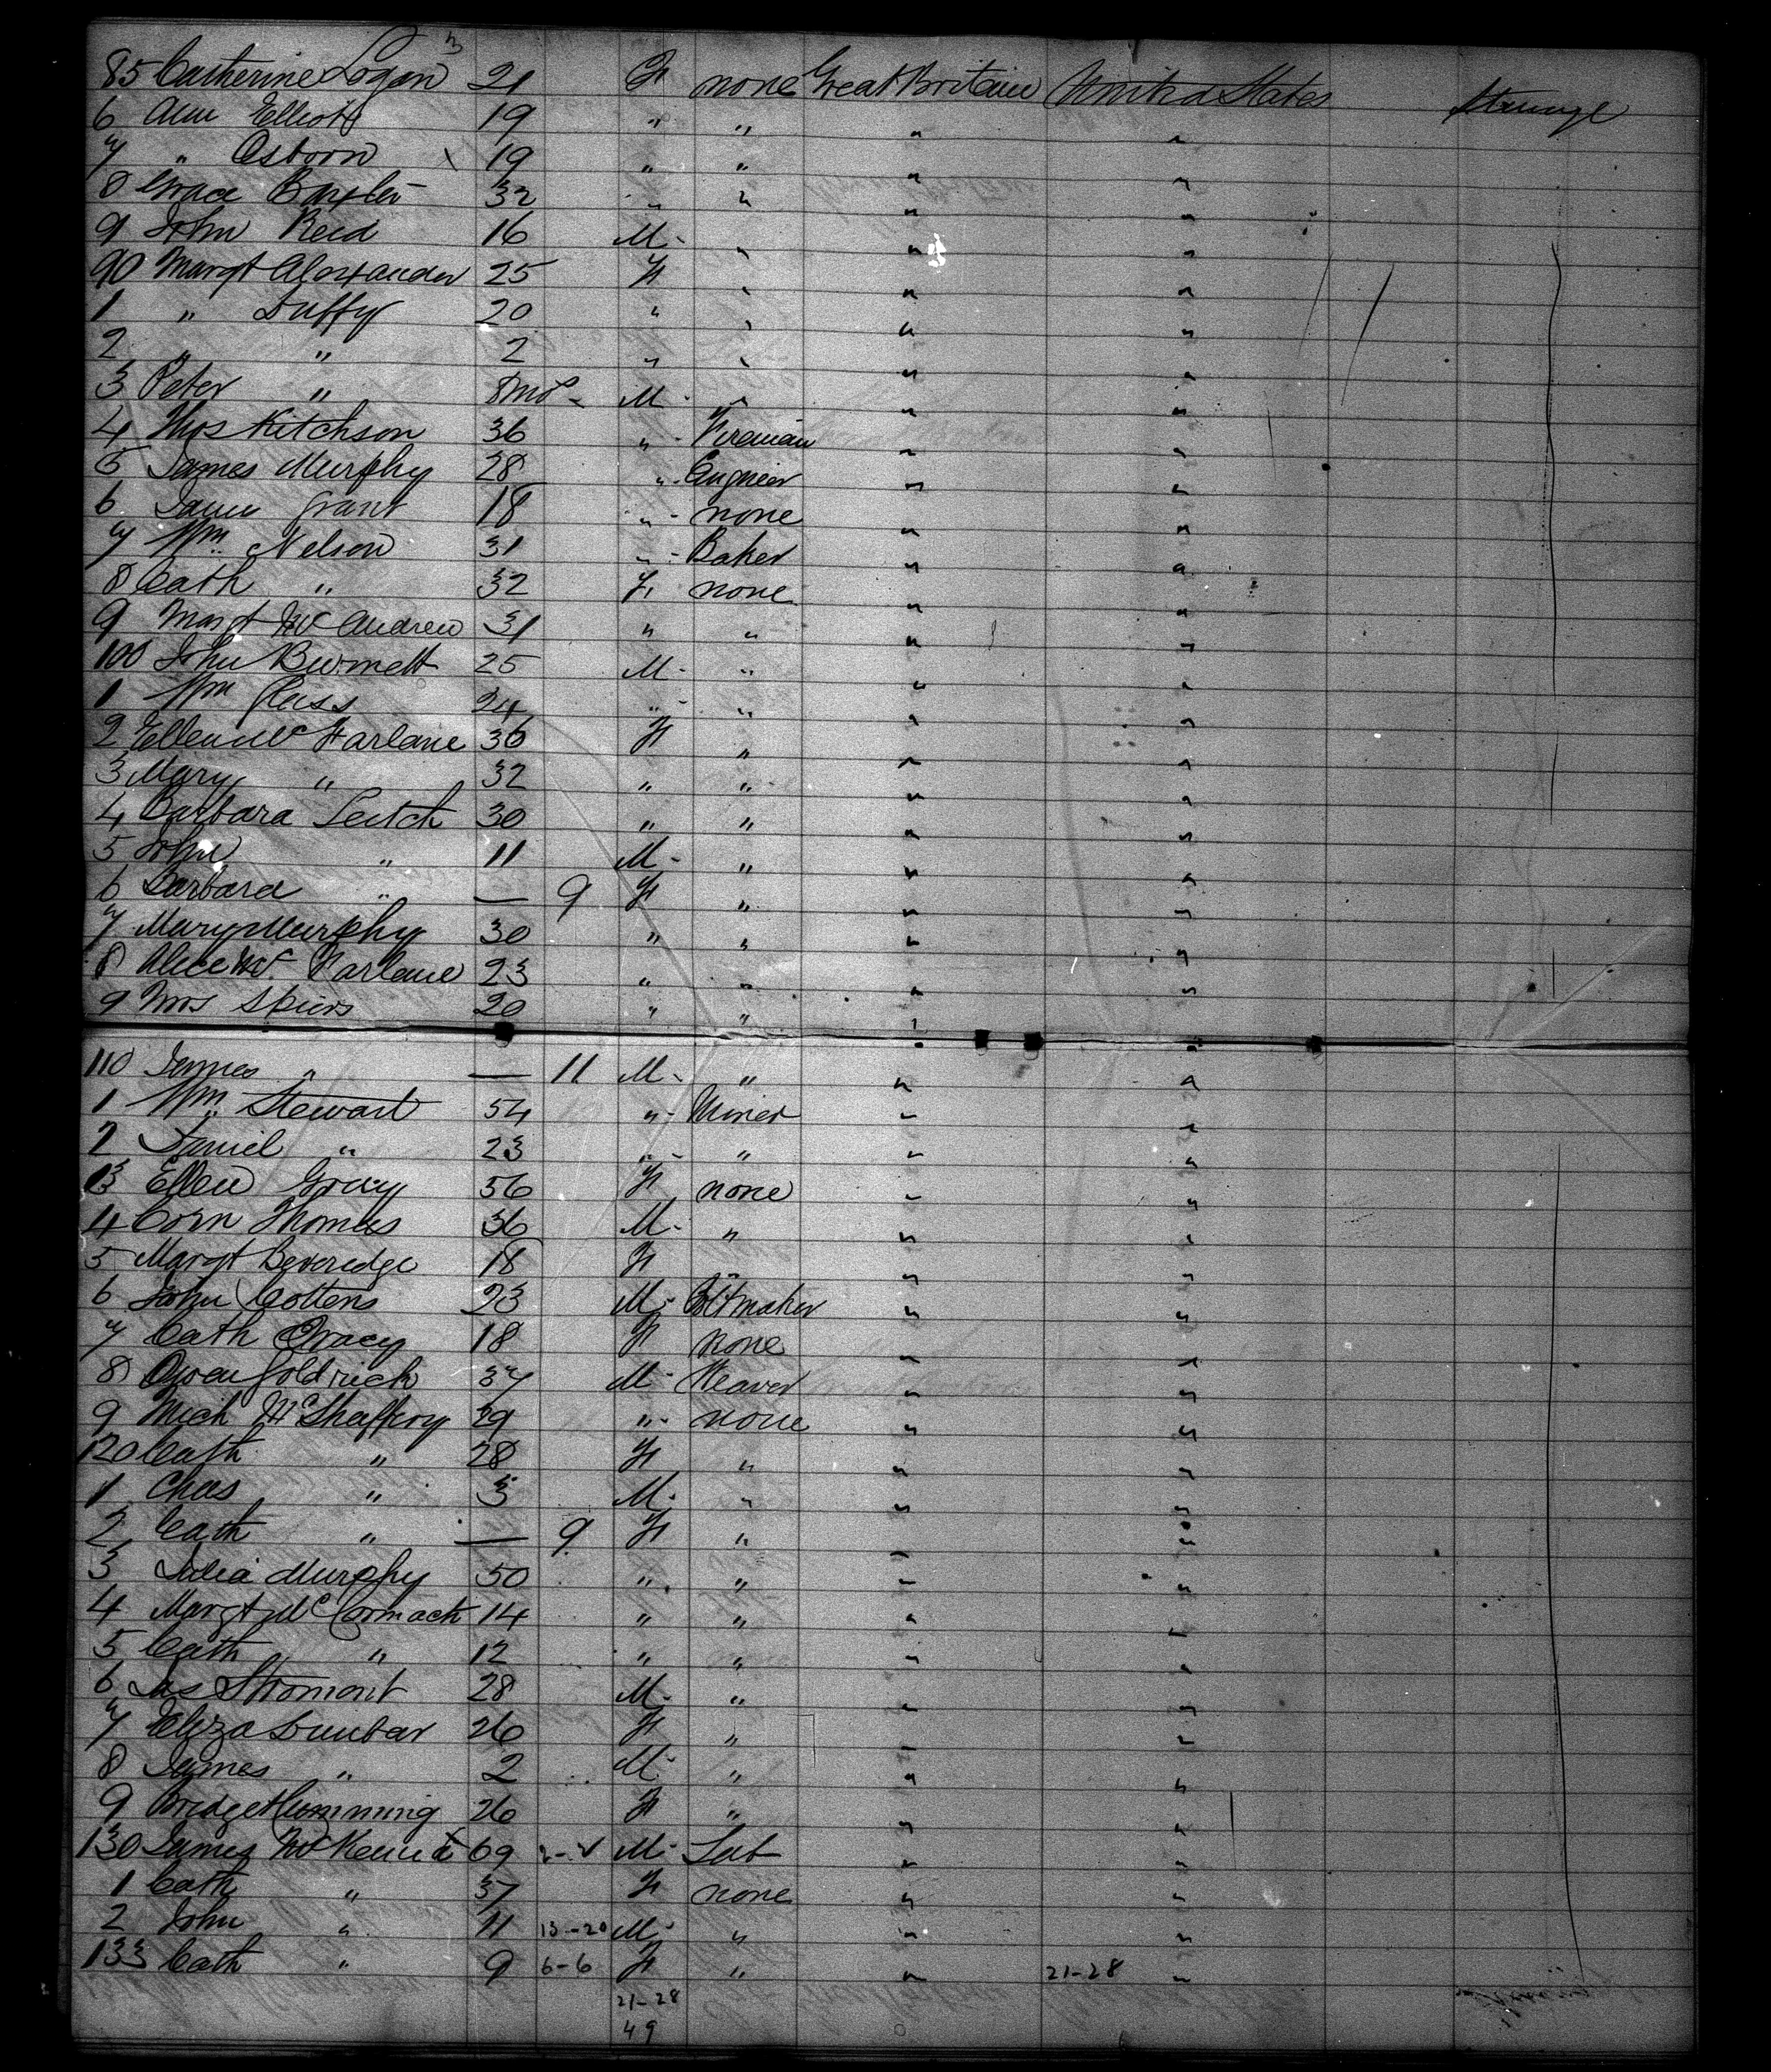 85 Catherine Logan 21 F none Great Britain United States Steerage
6 Ann Elliott 19 " " " "
7 " Osborn 19 " " " "
8 Grace Baxter 32 " " " "
9 John Reid 16 M " " "
90 Margt Alexander 25 F " " "
1 " Duffy 20 " " " "
2 " " 2 " " " "
3 Peter " 8 mos M " " "
4 Thos Kitchson 36 " Fireman " "
5 James Murphy 28 " Engineer " "
6 James Grant 18 " none " "
7 Wm Nelson 31 " Baker " "
8 Cath " 32 F none " "
9 Margt Mc Andrew 31 " " " "
100 John Burnett 25 M " " "
1 Wm Glass 24 " " " "
2 Ellen Mc Farlane 36 F " " "
3 Mary " 32 " " " "
4 Barbara Leitch 30 " " " "
5 John " 11 M " " "
6 Barbara " — 9 F " " "
7 Mary Murphy 30 " " " "
8 Alice Mc Farlane 23 " " " "
9 Mrs Spiers 20 " " " "
110 James " — 11 M " " "
1 Wm Stewart 54 " Miner " "
2 Daniel " 23 " " " "
13 Ellen Gray 56 F none " "
4 Corn Thomas 36 M " " "
5 Margt Beveridge 18 F " " "
6 John Cottens 23 M Boltmaker " "
7 Cath Tracey 18 F none " "
8 Owen Goldrick 37 M Weaver " "
9 Mich McShaffrey 29 " none " "
120 Cath " 28 F " " "
1 Chas " 3 M " " "
2 Cath " — 9 F " " "
3 Julia Murphy 50 " " " "
4 Margt McCormack 14 " " " "
5 Cath " 12 " " " "
6 Jas Stromont 28 M " " "
7 Eliza Dunbar 26 F " " "
8 James " 2 M " " "
9 Bridget Cumming 26 F " " "
130 James Mc 69 M Lab " "
1 Cath " 37 F none " "
2 John " 11 13-20 M " " "
133 Cath " 9 6-6 F " " 21-28 "
21-28
49